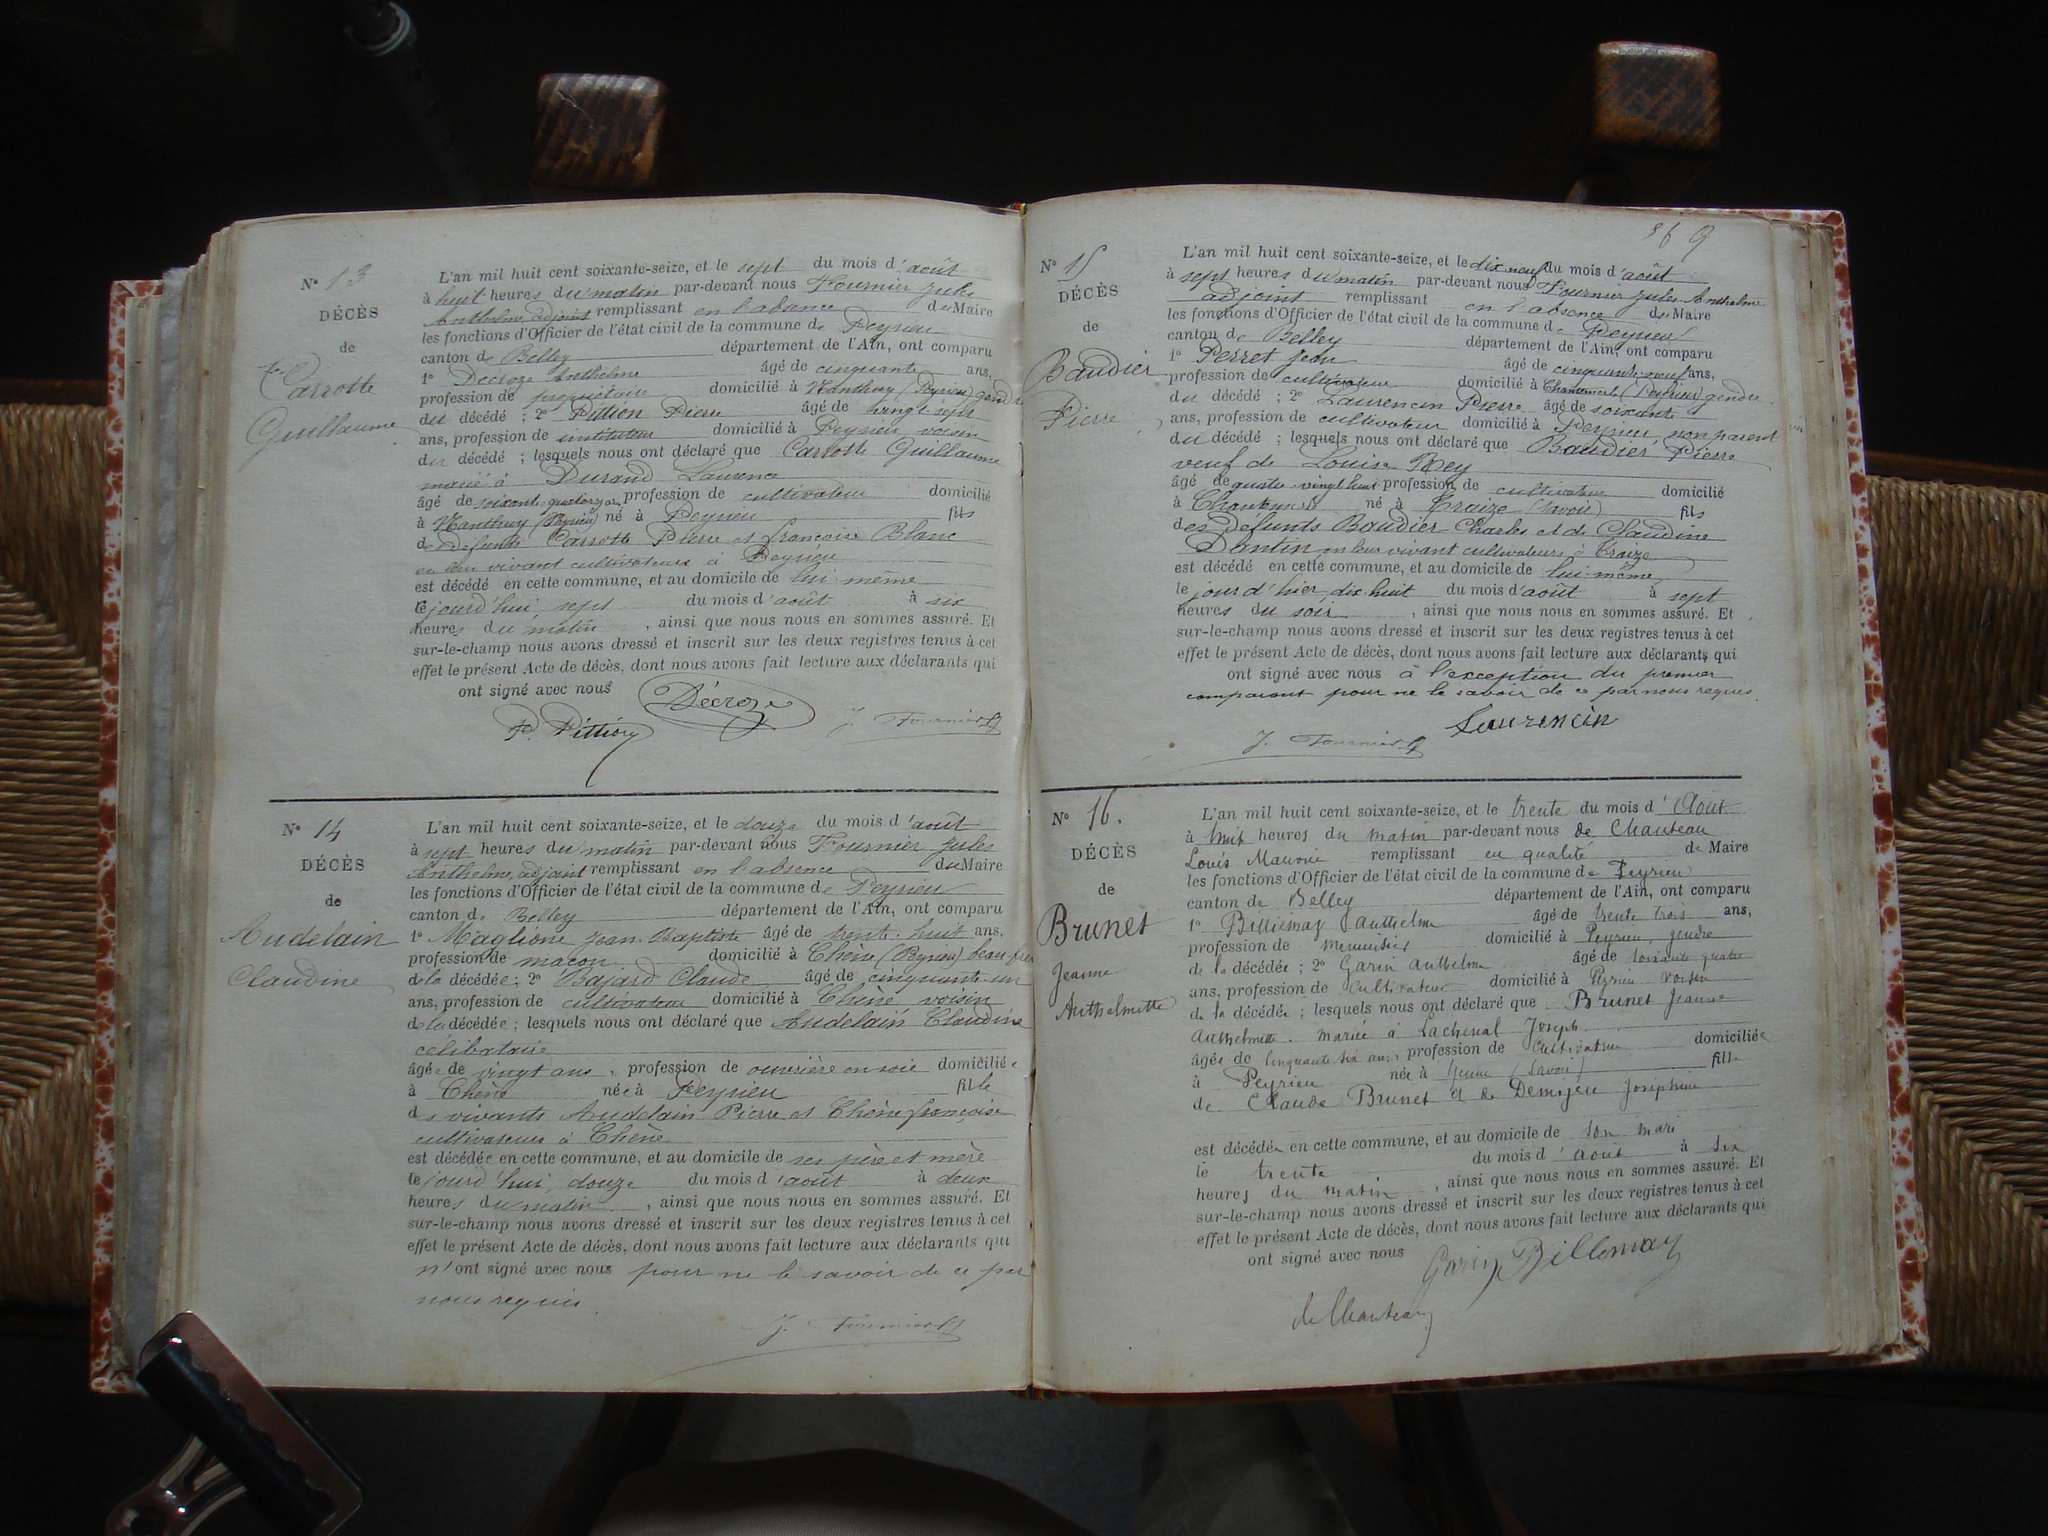 Nº 13
DÉCÈS
de
Carrotte
Guillaume
L'an mil huit cent soixante-seize, et le sept du mois d'août
à huit heures du matin par-devant nous Fournier Jules
Anthelme, adjoint remplissant en l'absence du Maire
les fonctions d'Officier de l'état civil de la commune de Peyrieu
canton de Belley département de l'Ain, ont comparu
1º Décroze Anthelme âgé de cinquante ans,
profession de propriétaire domicilié à Nanthuy (Peyrieu) gendre
du décédé ; 2º Pittion Pierre âgé de vingt sept
ans, profession de instituteur domicilié à Peyrieu voisin
du décédé ; lesquels nous ont déclaré que Carrotte Guillaume
marié à Durand Laurence
âgé de soixante quatorze profession de cultivateur domicilié
à Nanthuy (Peyrieu) né à Peyrieu fils
de défunts Carrotte Pierre et françoise Blanc
en leur vivant cultivateurs à Peyrieu
est décédé en cette commune, et au domicile de lui même
le jourd'hui sept du mois d'août à six
heures du matin , ainsi que nous nous en sommes assuré. Et
sur-le-champ nous avons dressé et inscrit sur les deux registres tenus à cet
effet le présent Acte de décès, dont nous avons fait lecture aux déclarants qui
ont signé avec nous
Décroze
P. Pittion
J. Fournier
Nº 14
DÉCÈS
de
Audelain
Claudine
L'an mil huit cent soixante-seize, et le douze du mois d'août
à sept heures du matin par-devant nous Fournier Jules
Anthelme, adjoint remplissant en l'absence du Maire
les fonctions d'Officier de l'état civil de la commune de Peyrieu
canton de Belley département de l'Ain, ont comparu
1º Maglione Jean-Baptiste âgé de trente-huit ans,
profession de maçon domicilié à Chêne (Peyrieu) beau frère
de la décédée ; 2º Bajard Claude âgé de cinquante-un
ans, profession de cultivateur domicilié à Chêne voisin
de la décédée ; lesquels nous ont déclaré que Audelain Claudine
célibataire
âgée de vingt ans , profession de ouvrière en soie domiciliée
à Chêne née à Peyrieu fille
des vivants Audelain Pierre et Chêne françoise
cultivateurs à Chêne
est décédée en cette commune, et au domicile de ses père et mère
le jourd'hui, douze du mois d'août à deux
heures du matin , ainsi que nous nous en sommes assuré. Et
sur-le-champ nous avons dressé et inscrit sur les deux registres tenus à cet
effet le présent Acte de décès, dont nous avons fait lecture aux déclarants qui
n'ont signé avec nous pour ne le savoir de ce par
nous requis.
J. Fournier
869
Nº 15
DÉCÈS
de
Baudier
Pierre
L'an mil huit cent soixante-seize, et le dix neuf du mois d'août
à sept heures du matin par-devant nous Fournier Jules Anthelme
adjoint remplissant en l'absence du Maire
les fonctions d'Officier de l'état civil de la commune de Peyrieu
canton de Belley département de l'Ain, ont comparu
1º Perret Jean âgé de cinquante-neuf ans,
profession de cultivateur domicilié à (Peyrieu) gendre
du décédé ; 2º Laurencin Pierre âgé de soixante
ans, profession de cultivateur domicilié à Peyrieu, non parent
du décédé ; lesquels nous ont déclaré que Baudier, Pierre
veuf de Louise Rey
âgé de quatre-vingt huit profession de cultivateur domicilié
à né à Traize (Savoie) fils
des défunts Baudier Charles et de Claudine
Dantin en leur vivant cultivateurs à Traize
est décédé en cette commune, et au domicile de lui-même
le jour d'hier, dix huit du mois d'août à sept
heures du soir , ainsi que nous nous en sommes assuré. Et
sur-le-champ nous avons dressé et inscrit sur les deux registres tenus à cet
effet le présent Acte de décès, dont nous avons fait lecture aux déclarants qui
ont signé avec nous à l'exception du premier
comparant pour ne le savoir de ce par nous requis.
Laurencin
J. Fournier
Nº 16.
DÉCÈS
de
Brunet
Jeanne
Anthelmette
L'an mil huit cent soixante-seize, et le trente du mois d'Août
à huit heures du matin par-devant nous de Chauteau
Louis Maurice remplissant en qualité de Maire
les fonctions d'Officier de l'état civil de la commune de Peyrieu
canton de Belley département de l'Ain, ont comparu
1º Billiemay Anthelme âgé de trente trois ans,
profession de menuisier domicilié à Peyrieu, gendre
de la décédée ; 2º Garin Anthelme âgé de soixante quatre
ans, profession de Cultivateur domicilié à Peyrieu voisin
de la décédée ; lesquels nous ont déclaré que Brunet Jeanne
Anthelmette. mariée à Lachenal Joseph.
âgée de cinquante six ans, profession de Cultivatrice domiciliée
à Peyrieu née à Yenne (Savoie) fille
de Claude Brunet et de Demijeu Joséphine
est décédée en cette commune, et au domicile de son mari
le trente du mois d'août à six
heures du matin , ainsi que nous nous en sommes assuré. Et
sur-le-champ nous avons dressé et inscrit sur les deux registres tenus à cet
effet le présent Acte de décès, dont nous avons fait lecture aux déclarants qui
ont signé avec nous Garin Billemay
de Chauteau